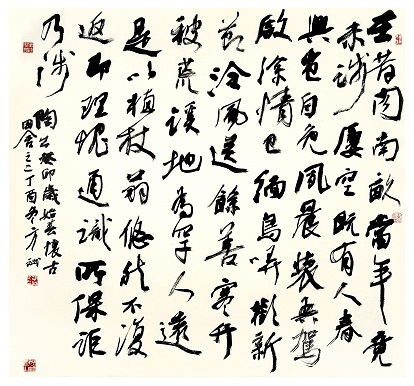 在昔聞南畝當年竟
未踐屢空既有人春
興豈自免夙晨裝吾駕
啟塗情已緬鳥哢歡新
節泠風送餘善寒竹
被荒蹊地為罕人遠
是以植杖翁悠然不復
返即理愧通識所保詎
乃淺
陶公癸卯歲始春懷古
田舍之二丁酉冬方